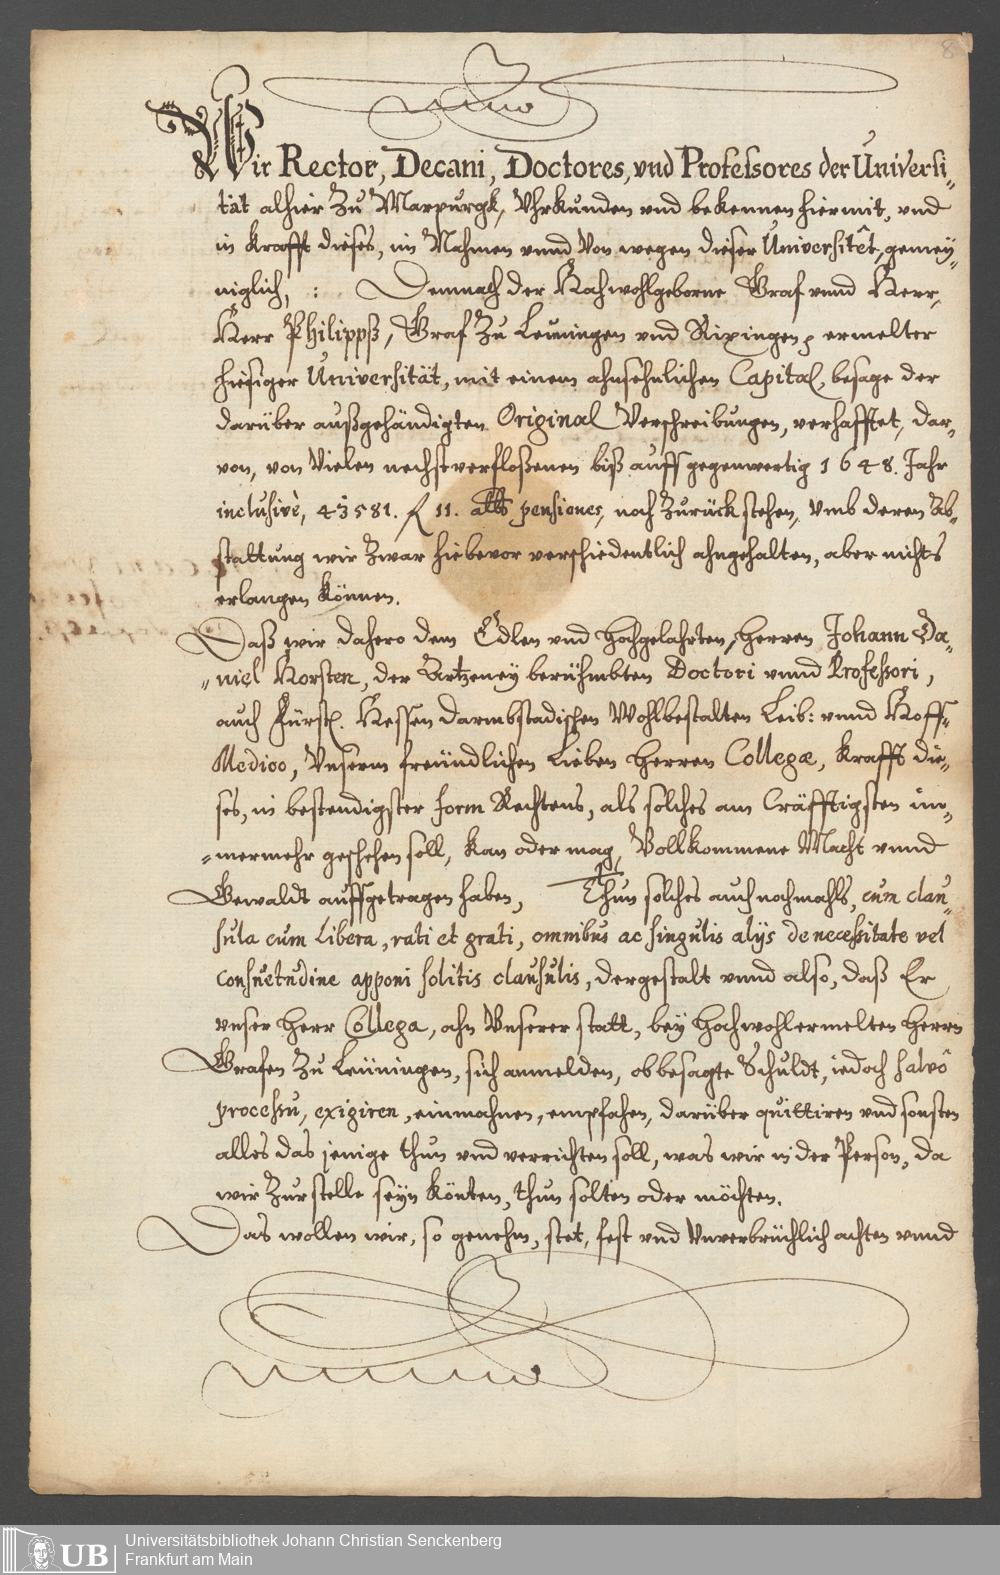 8
Wir Rector, Decani, Doctores, vnd Professores der Universi„
tät alhier Zu Marpurgk, Vhrkunden vnd bekennen hiermit, vnd
in krafft dieses, im Nahmen vnnd Von wegen dieser Universitet, gemey„
niglich, : Demnach der Hochwohlgeborne Graf vnnd Herr,
Herr Philipps, Graf Zu Leiningen vnd Rixingen, ermelter
hiesiger Universität, mit einem ahnsehnlichen Capital, besage der
darüber außgehändigten Original Verschreibungen, verhafftet, dar„
von, von Vielen nechstverfloßenen biß auff gegenwertig 1648. Jahr
inclusivè, 43581. fl 11. alb pensiones, noch Zurück stehen, Vmb deren Ab„
stattung wir Zwar hiebevor verschiedentlich ahngehalten, aber nichts
erlangen können.
Daß wir dahero dem Edlen vnd hochgelahrten, Herren Johann Da„
„niel Horsten, der Artzeney berühmbten Doctori vnnd Professori,
auch Fürstl. Hessen Darmbstadischen Wohlbestalten Leib: vnnd Hoff„
Medico, Vnserm freündlichen Lieben Herren Collegæ, krafft die„
ses, in bestendigster form Rechtens, als solches am Cräfftigsten im„
„mermehr geschehen soll, kan oder mag, Vollkommene Macht vnnd
Gewaldt auffgetragen haben, Thun solches auch nochmahls, cum clau„
sula cum Libera, rati et grati, omnibus ac singulis alijs de necessitate vel
consuetudine apponi solitis clausulis, dergestalt vnnd also, daß Er
vnser Herr Collega, ahn Vnserer statt, bey Hochwohlermelten Herrn
Grafen Zu Leüningen, sich anmelden, obbesagte Schuldt, iedoch salvo
processu, exigiren, einmahnen, empfahen, darüber quittiren vnd sonsten
alles das jenige thun vnd verrichten soll, was wir in der Person, da
wir Zur stelle seyn könten, thun solten oder möchten.
Das wollen wir, so genehm, stet, fest vnd Vnverbrüchlich achten vnnd
UB
Universitätsbibliothek Johann Christian Senckenberg
Frankfurt am Main